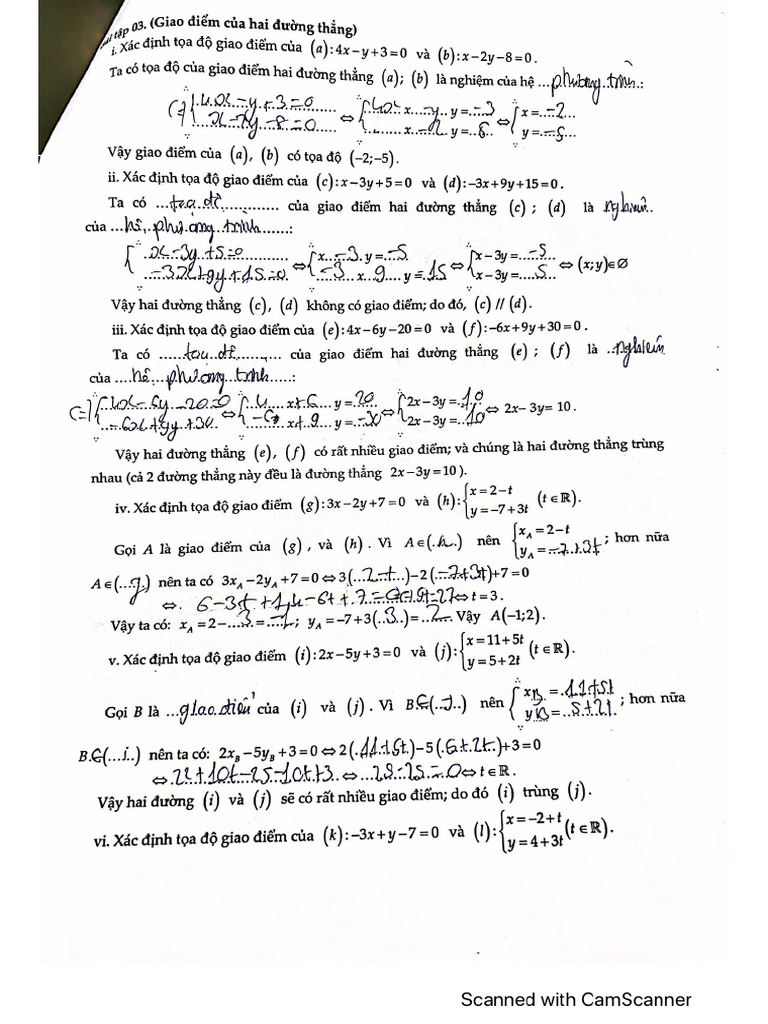 tập 03. (Giao điểm của hai đường thẳng)
i. Xác định tọa độ giao điểm của (a):4x−y+3=0 và (b):x−2y−8=0.
Ta có tọa độ của giao điểm hai đường thẳng (a); (b) là nghiệm của hệ ...phương trình.:
⇔ {4x−y+3=0 / x−2y−8=0 ⇔ {4x−y=−3 / x−2y=8 ⇔ {x=−2 / y=−5
Vậy giao điểm của (a), (b) có tọa độ (−2;−5).
ii. Xác định tọa độ giao điểm của (c):x−3y+5=0 và (d):−3x+9y+15=0.
Ta có ...toạ độ... của giao điểm hai đường thẳng (c); (d) là nghiệm
của ...hệ phương trình...:
{x−3y+5=0 / −3x+9y+15=0 ⇔ {x...−3.y=−5 / −3...x...9...y=.15 ⇔ {x−3y=...−5 / x−3y=....5 ⇔ (x;y)∈∅
Vậy hai đường thẳng (c), (d) không có giao điểm; do đó, (c) // (d).
iii. Xác định tọa độ giao điểm của (e):4x−6y−20=0 và (f):−6x+9y+30=0.
Ta có ... của giao điểm hai đường thẳng (e); (f) là nghiệm
của ...hệ phương trình...:
{4x−6y−20=0 / −6x+9y+30 ⇔ {4...x+6...y=20 / −6...x+9...y=−30 ⇔ {2x−3y=.10 / 2x−3y=..10 ⇔ 2x−3y=10.
Vậy hai đường thẳng (e), (f) có rất nhiều giao điểm; và chúng là hai đường thẳng trùng
nhau (cả 2 đường thẳng này đều là đường thẳng 2x−3y=10).
iv. Xác định tọa độ giao điểm (g):3x−2y+7=0 và (h):{x=2−t / y=−7+3t (t∈ℝ).
Gọi A là giao điểm của (g), và (h). Vì A∈(.h.) nên {x_A=2−t / y_A=−7+3t; hơn nữa
A∈(...g.) nên ta có 3x_A−2y_A+7=0⇔3(..2−t...)−2(.−7+3t)+7=0
⇔. 6−3t+14−6t+7=0⇔.9t=27⇔t=3.
Vậy ta có: x_A=2−...3...=...−1; y_A=−7+3(..3..)=..2.. Vậy A(−1;2).
v. Xác định tọa độ giao điểm (i):2x−5y+3=0 và (j):{x=11+5t / y=5+2t (t∈ℝ).
Gọi B là ...giao điểm của (i) và (j). Vì B∈(..j..) nên {x_B=.11+5t / y_B=..5+2t; hơn nữa
B∈(...i..) nên ta có: 2x_B−5y_B+3=0⇔2(.11+5t.)−5(.5+2t.)+3=0
⇔22+10t−25−10t+3.⇔...25−25=0⇔t∈ℝ.
Vậy hai đường (i) và (j) sẽ có rất nhiều giao điểm; do đó (i) trùng (j).
vi. Xác định tọa độ giao điểm của (k):−3x+y−7=0 và (l):{x=−2+t / y=4+3t (t∈ℝ).
Scanned with CamScanner